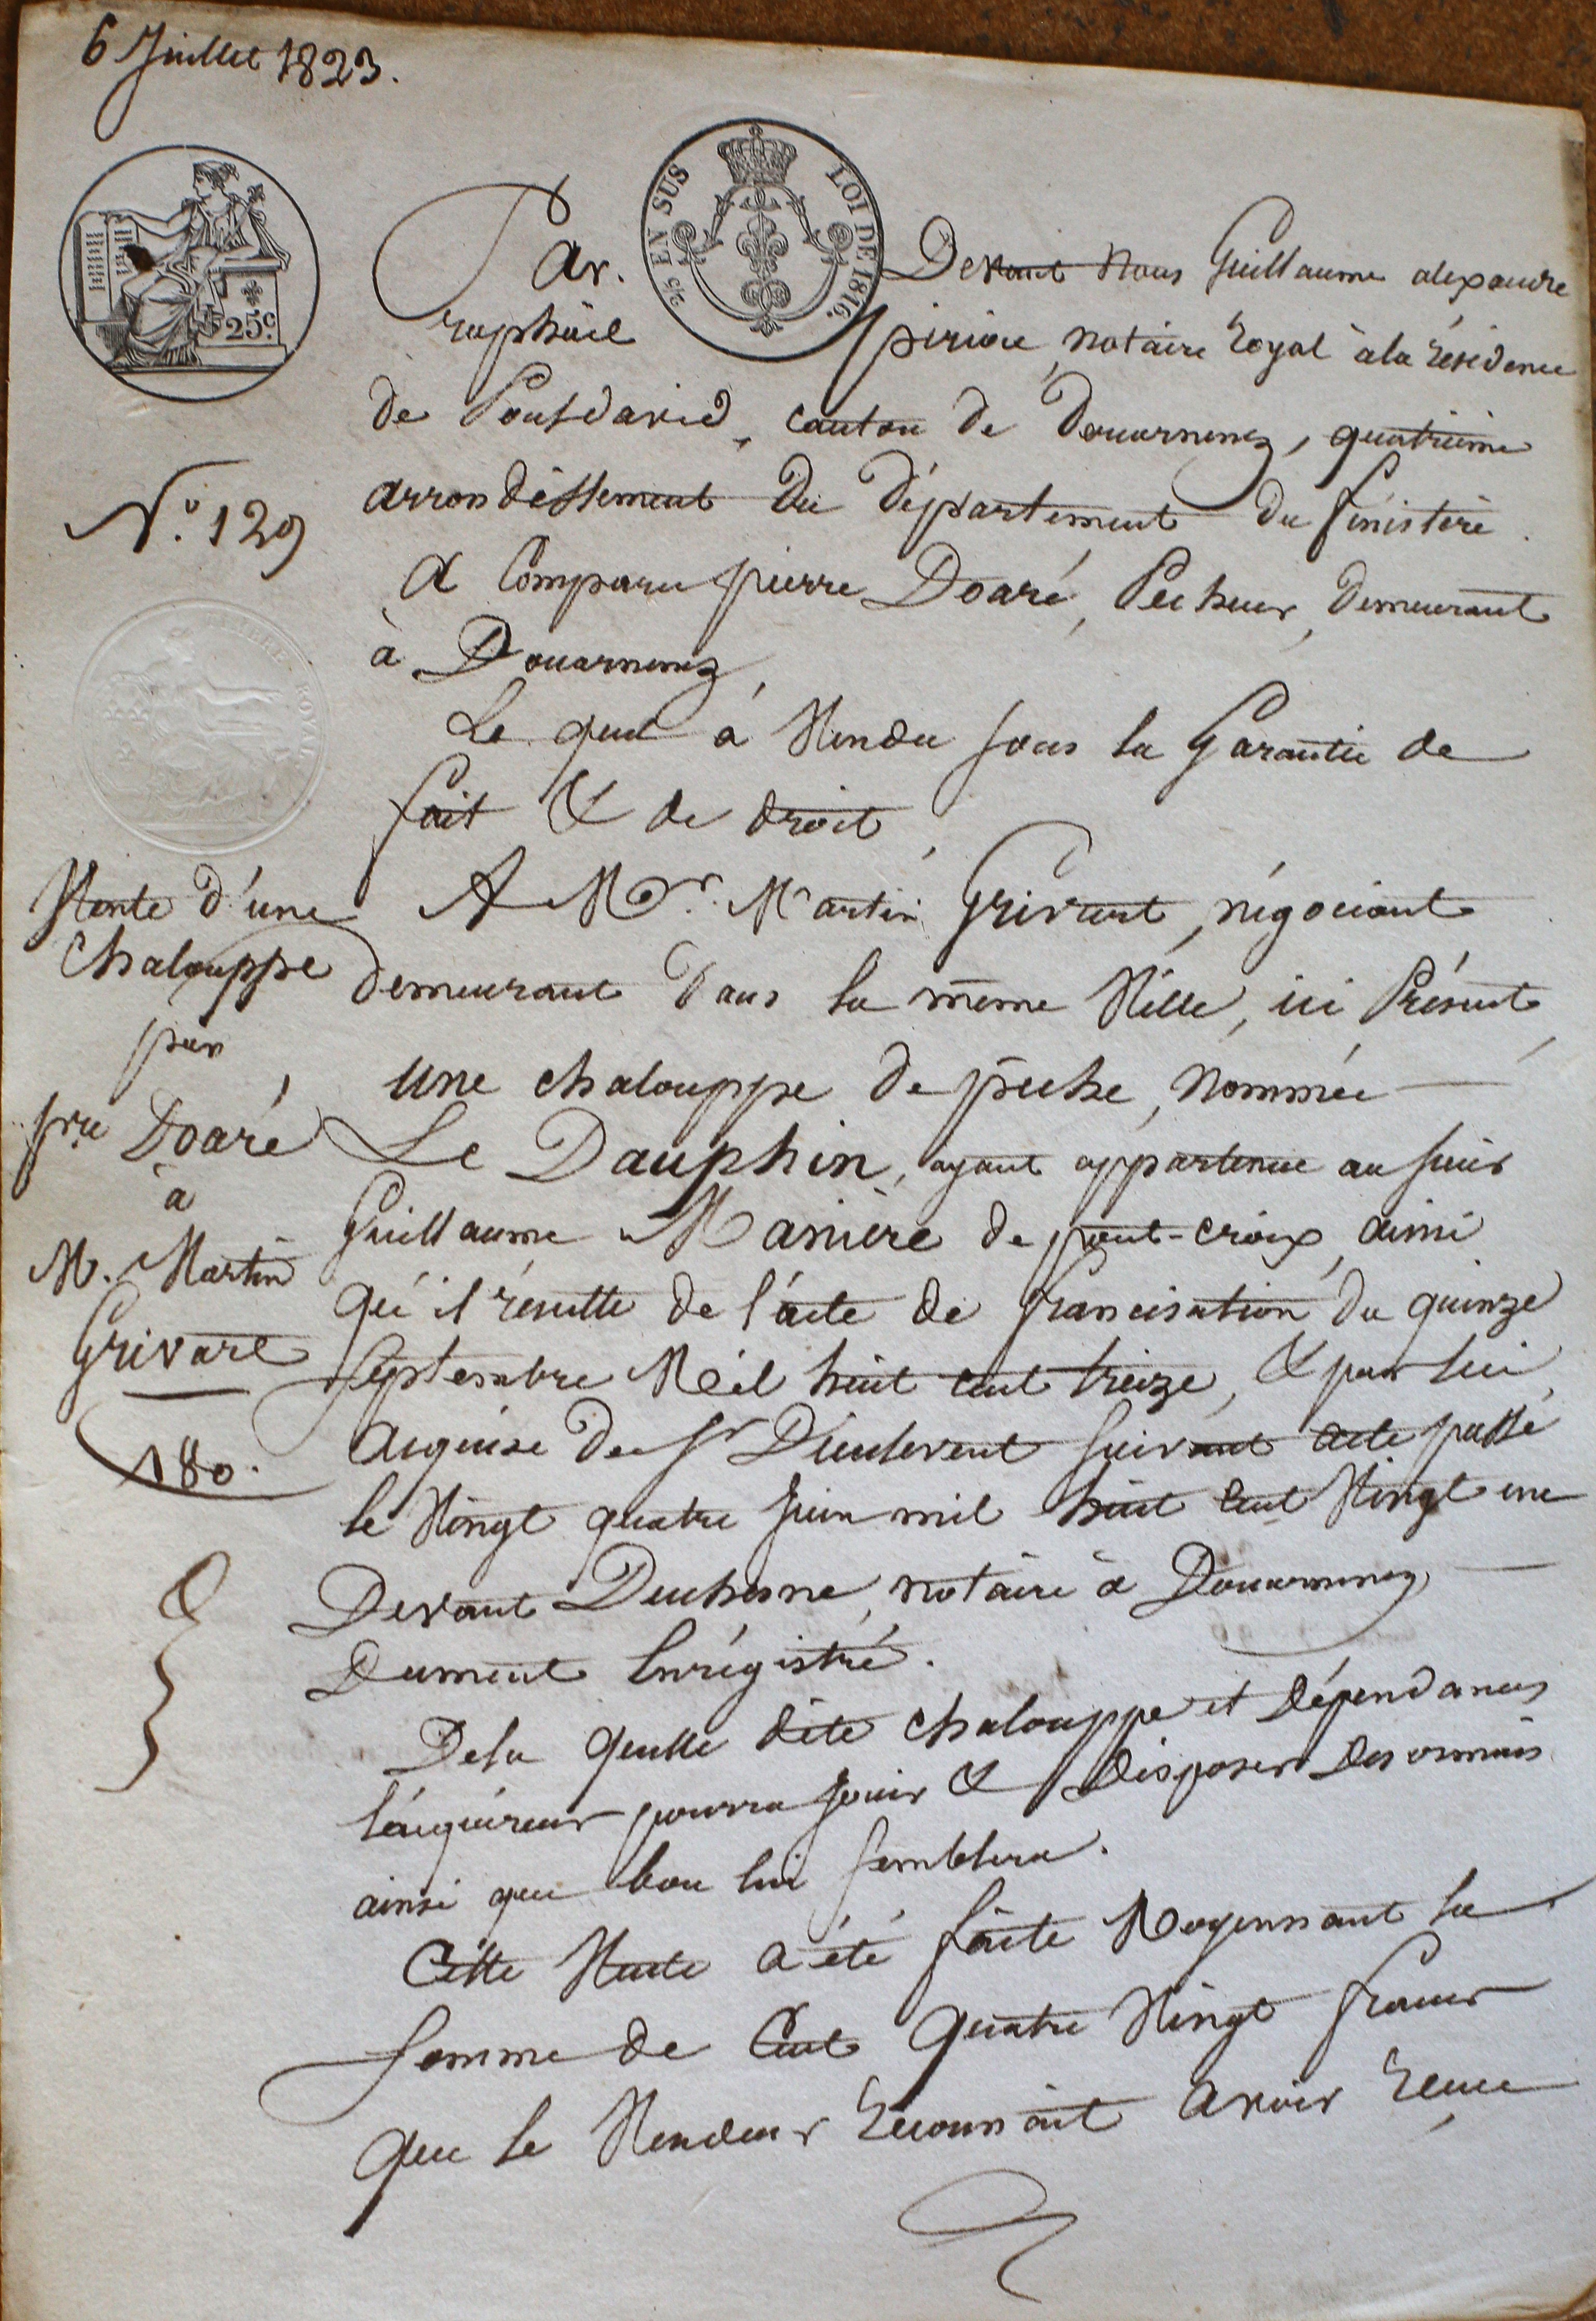 6 Juillet 1823.
2/5 EN SUS
LOI DE 1816.
25c.
Par Devant Nous Guillaume alexandre
raphäel piriou, notaire Royal à la résidence
de Pontdavid, canton de Douarnenez, quatrième
arrondissement Du Département du finistère.
N.º 129
A Comparu pierre Doaré, Pecheur, demeurant
à Douarnenez,
Le quel à Vendu sous la Garantie de
fait & de droit,
A Mr. Martin Grivart, négociant
demeurant dans la même Ville, ici Présent,
une chalouppe de pêche, nommée
Le Dauphin, ayant appartenue au sieur
Guillaume Manière de pont-croix, ainsi
qu'il résulte de l'acte de francisation du quinze
septembre Mil huit cent treize, & par lui
acquise de Sr Dieulevent suivant acte passé
le Vingt quatre juin mil huit cent Vingt un
Devant Duchesne, notaire à Douarnenez
Dument Enrégistré.
Vente d'une
Chalouppe
par
pre Doaré
à
M. Martin
Grivart
180.
De la quelle dite chalouppe et dépendances
l'acquéreur pourra jouir & disposer désormais
ainsi que bon lui semblera.
Cette Vente a été faite Moyennant la
somme de Cent quatre Vingt francs
que le Vendeur reconnait avoir reçue